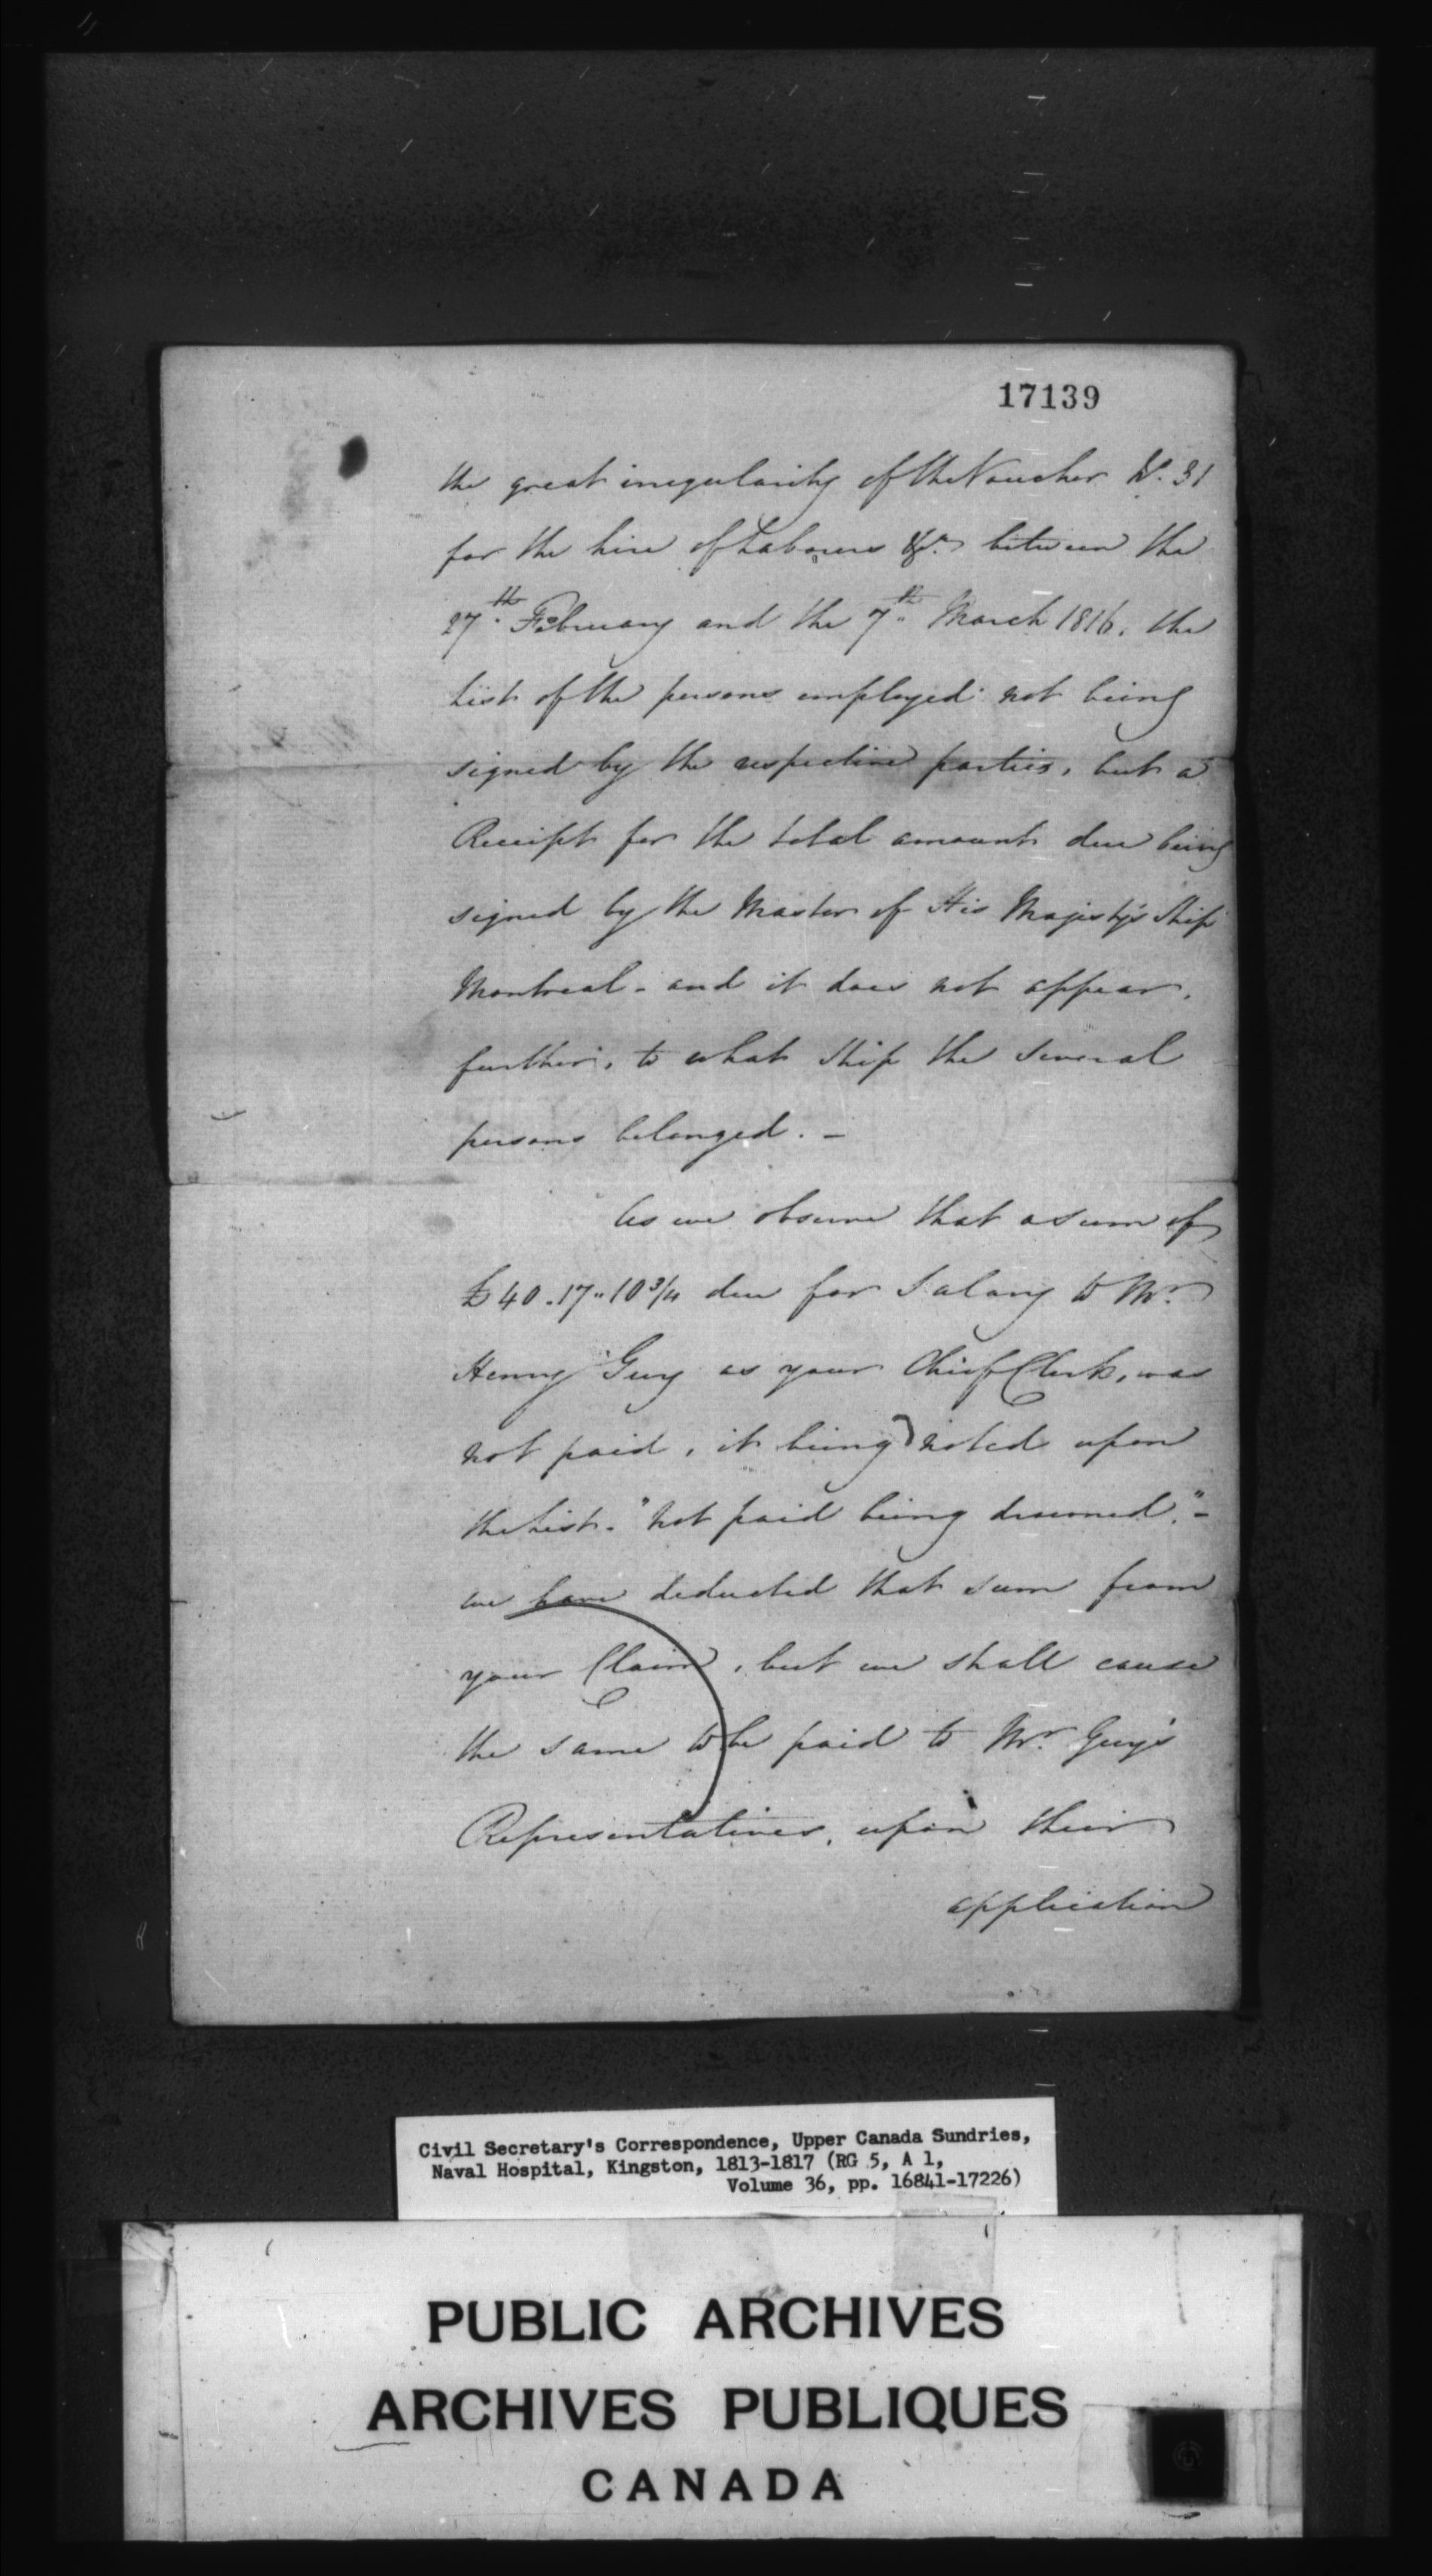 17139
the great irregularity of the Voucher No. 31
for the hire of Labourers &c. between the
27th. February and the 7th. March 1816. the
List of the persons employed not being
signed by the respective parties, but a
Receipt for the total amount due being
signed by the Master of His Majesty's Ship
Montreal - and it does not appear,
further, to what Ship the several
persons belonged. -
As we observe that a sum of
£40.17..10 3/4 due for Salary to Mr.
Henry Guy as your Chief Clerk, was
not paid, it being noted upon
the List. "not paid being drowned." -
we have deducted that sum from
your Claim, but we shall cause
the same to be paid to Mr. Guy's
Representatives, upon their
application
Civil Secretary's Correspondence, Upper Canada Sundries,
Naval Hospital, Kingston, 1813-1817 (RG 5, A 1,
Volume 36, pp. 16841-17226)
PUBLIC ARCHIVES
ARCHIVES PUBLIQUES
CANADA